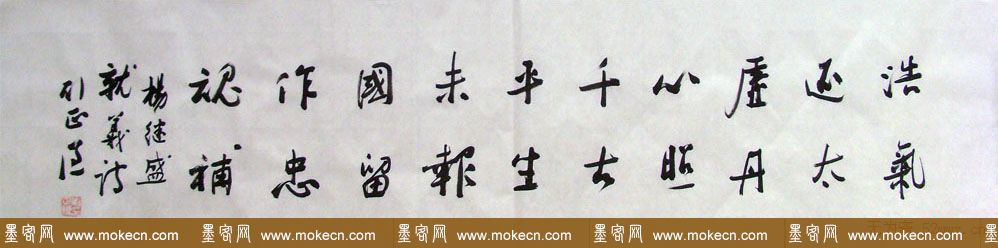 浩氣
还太
虛丹
心照
千古
平生
未報
國留
作忠
魂補
楊继盛
就義詩
墨客网 www.mokecn.com 墨客网 www.mokecn.com 墨客网 www.mokecn.com 墨客网 www.mokecn.com 墨客网 www.mokecn.com